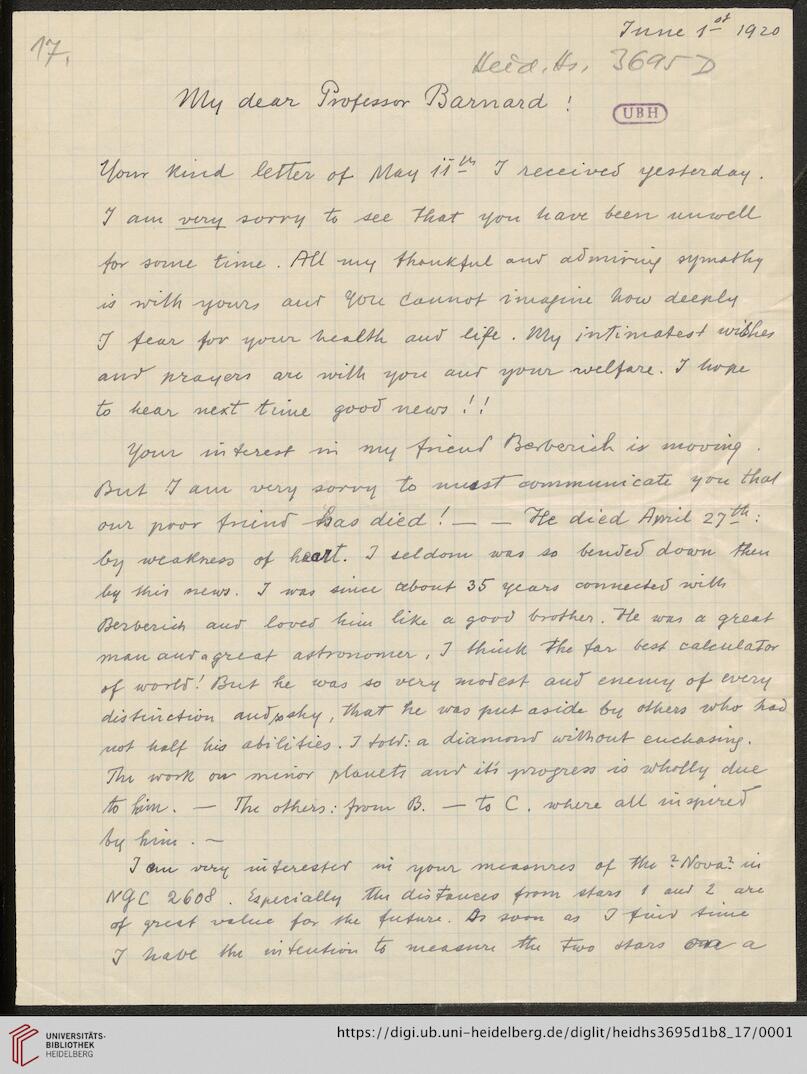 June 1st 1920
17.
Heid. Hs. 3695 D
My dear Professor Barnard !
UBH
Your kind letter of May 11th I received yesterday.
I am very sorry to see that you have been unwell
for some time. All my thankful and admiring sympathy
is with yours and you cannot imagine how deeply
I fear for your health and life. My intimatest wishes
and prayers are with you and your welfare. I hope
to hear next time good news !!
Your interest in my friend Berberich is moving.
But I am very sorry to must communicate you that
our poor friend has died! — — He died April 27th:
by weakness of heart. I seldom was so bended down then
by this news. I was since about 35 years connected with
Berberich and loved him like a good brother. He was a great
man and a great astronomer, I think the far best calculator
of world! But he was so very modest and enemy of every
distinction and, that he was put aside by others who had
not half his abilities. I told: a diamond without enchasing.
The work on minor planets and it's progress is wholly due
to him. — The others: from B. — to C. where all inspired
by him. —
I am very interested in your measures of the ?Nova? in
NGC 2608. Especially the distances from stars 1 and 2 are
of great value for the future. As soon as I find time
I have the intention to measure the two stars on a
UNIVERSITÄTS-
BIBLIOTHEK
HEIDELBERG
https://digi.ub.uni-heidelberg.de/diglit/heidhs3695d1b8_17/0001